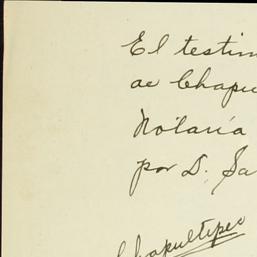 El testim
de Chapu
Notaría
por D. Sa
Chapultepec